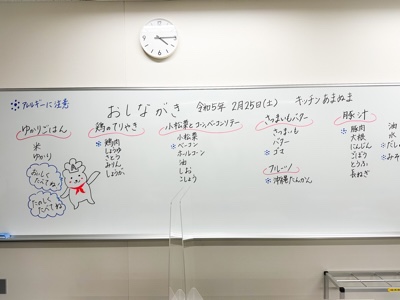 ※アレルギーに注意
おしながき 令和5年 2月25日(土) キッチンあまぬま
ゆかりごはん
米
ゆかり
おいしくたべてね
たのしくたべてね
鶏のてりやき
※鶏肉
しょうゆ
さとう
みりん
しょうが
小松菜とコーンベーコンソテー
小松菜
※ベーコン
ホールコーン
油
しお
こしょう
さつまいもバター
さつまいも
バター
※ゴマ
フルーツ
※沖縄たんかん
豚汁
※豚肉
大根
にんじん
ごぼう
とうふ
長ねぎ
油
水
※だし
※みそ